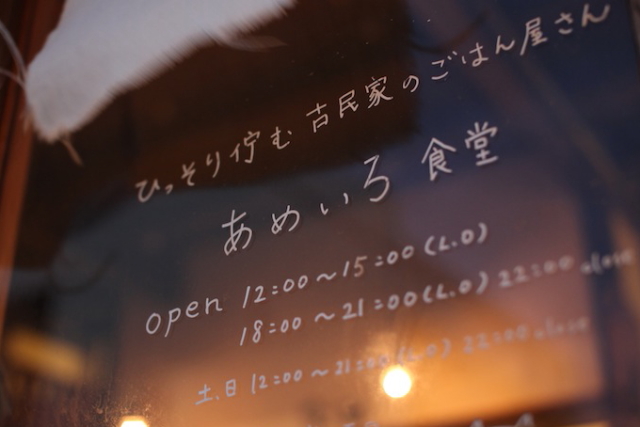 ひっそり佇む 古民家のごはん屋さん
あめいろ 食堂
open 12:00～15:00(L.O)
18:00～21:00(L.O) 22:00 close
土.日 12:00～21:00(L.O) 22:00 close